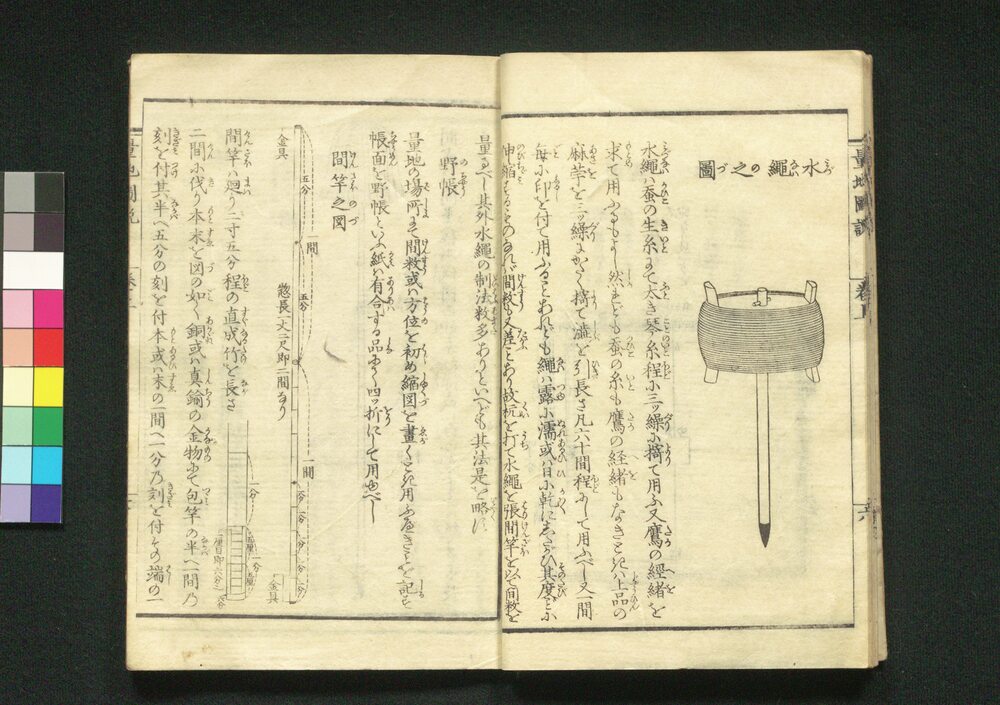 量地圖説
卷上
六
水繩之圖
水繩ハ蚕の生糸にて太き琴糸程に三ッ繰に撚て用ふ又鷹の經緒を
求て用ふるもよし然れども蚕の糸も鷹の経緒もなきときハ上品の
麻苧を三ッ繰にかたく撚て澁を引長さ凡六十間程にして用ふべし又一間
毎に印を付て用ふることあれども繩ハ露に濡或ハ日に乾にしたがひ其度ごとに
伸縮をなすものなれバ間数も又差ことあり故杭を打て水繩を張間竿を以て間数を
量るべし其外水繩の制法数多ありといへども其法是を略す
野帳
量地の場所にて間数或ハ方位を初め縮図を畫くとき用ふべきことを記す
帳面を野帳といふ紙ハ有合する品にて四ッ折にして用也べし
間竿之図
金具
五分
一間
五分
惣長一丈二尺即二間なり
一間
一分
一分
一分
一分
金具
一分
一分
間竿ハ廻り二寸五分程の直成竹を長さ
二間に伐り本末を図の如く銅或ハ真鍮の金物にて包竿の半へ一間乃
刻を付其半へ五分の刻を付本或ハ末の一間へ一分乃刻を付その端の一
量地圖説
卷上